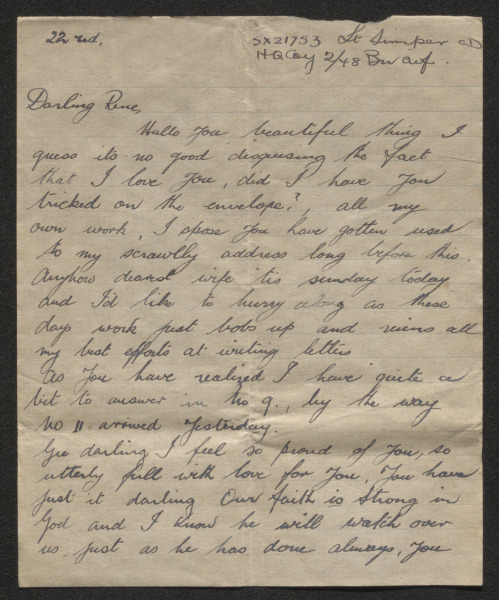 22nd.
SX21753 Lt Simper CD
HQ Coy 2/48 Bn aif.
Darling Rene,
Hullo you beautiful thing I
guess its no good disguising the fact
that I love you, did I have you
tricked on the envelope?, all my
own work, I spose you have gotten used
to my scrawlly address long before this.
Anyhow dearest wife tis sunday today
and I'd like to hurry along as these
days work just bobs up and ruins all
my best efforts at writing letters
As you have realized I have quite a
bit to answer in No 9., by the way
No 11 arrived yesterday.
Gee darling I feel so proud of you, so
utterly full with love for you, you have
just it darling Our faith is strong in
God and I know he will watch over
us, just as he has done always, you